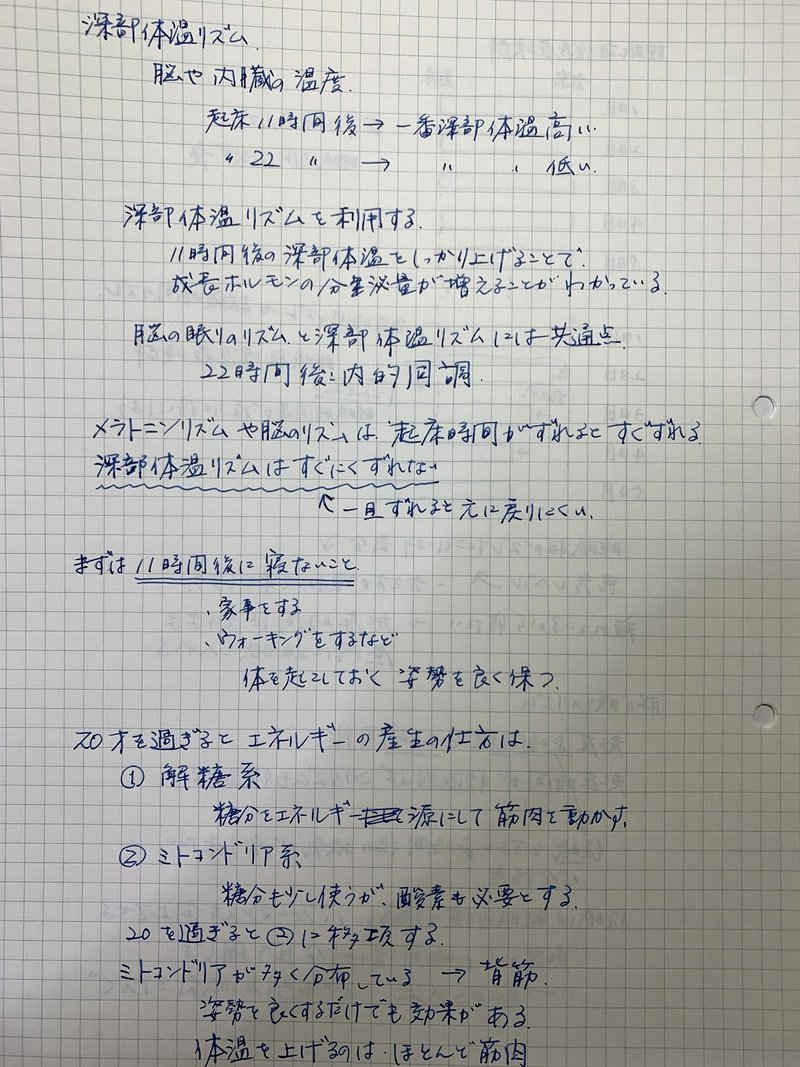 深部体温リズム
脳や内臓の温度.
起床11時間後→一番深部体温高い
〃 22 〃 → 〃 〃 低い.
深部体温リズムを利用する.
11時間後の深部体温をしっかり上げることで.
成長ホルモンの分泌量が増えることがわかっている.
脳の眠りのリズムと深部体温リズムには共通点.
22時間後:内的同調
メラトニンリズムや脳のリズムは、起床時間がずれるとすぐずれる.
深部体温リズムはすぐにくずれない
↑一旦ずれると元に戻りにくい.
まずは11時間後に寝ないこと.
、家事をする
、ウォーキングをするなど
体を起こしておく 姿勢を良く保つ.
20才を過ぎるとエネルギーの産生の仕方は.
① 解糖系
糖分をエネルギー源にして筋肉を動かす.
② ミトコンドリア系
糖分も少し使うが、酸素も必要とする.
20を過ぎると②に移項する.
ミトコンドリアが多く分布している → 背筋.
姿勢を良くするだけでも効果がある.
体温を上げるのは、ほとんど筋肉